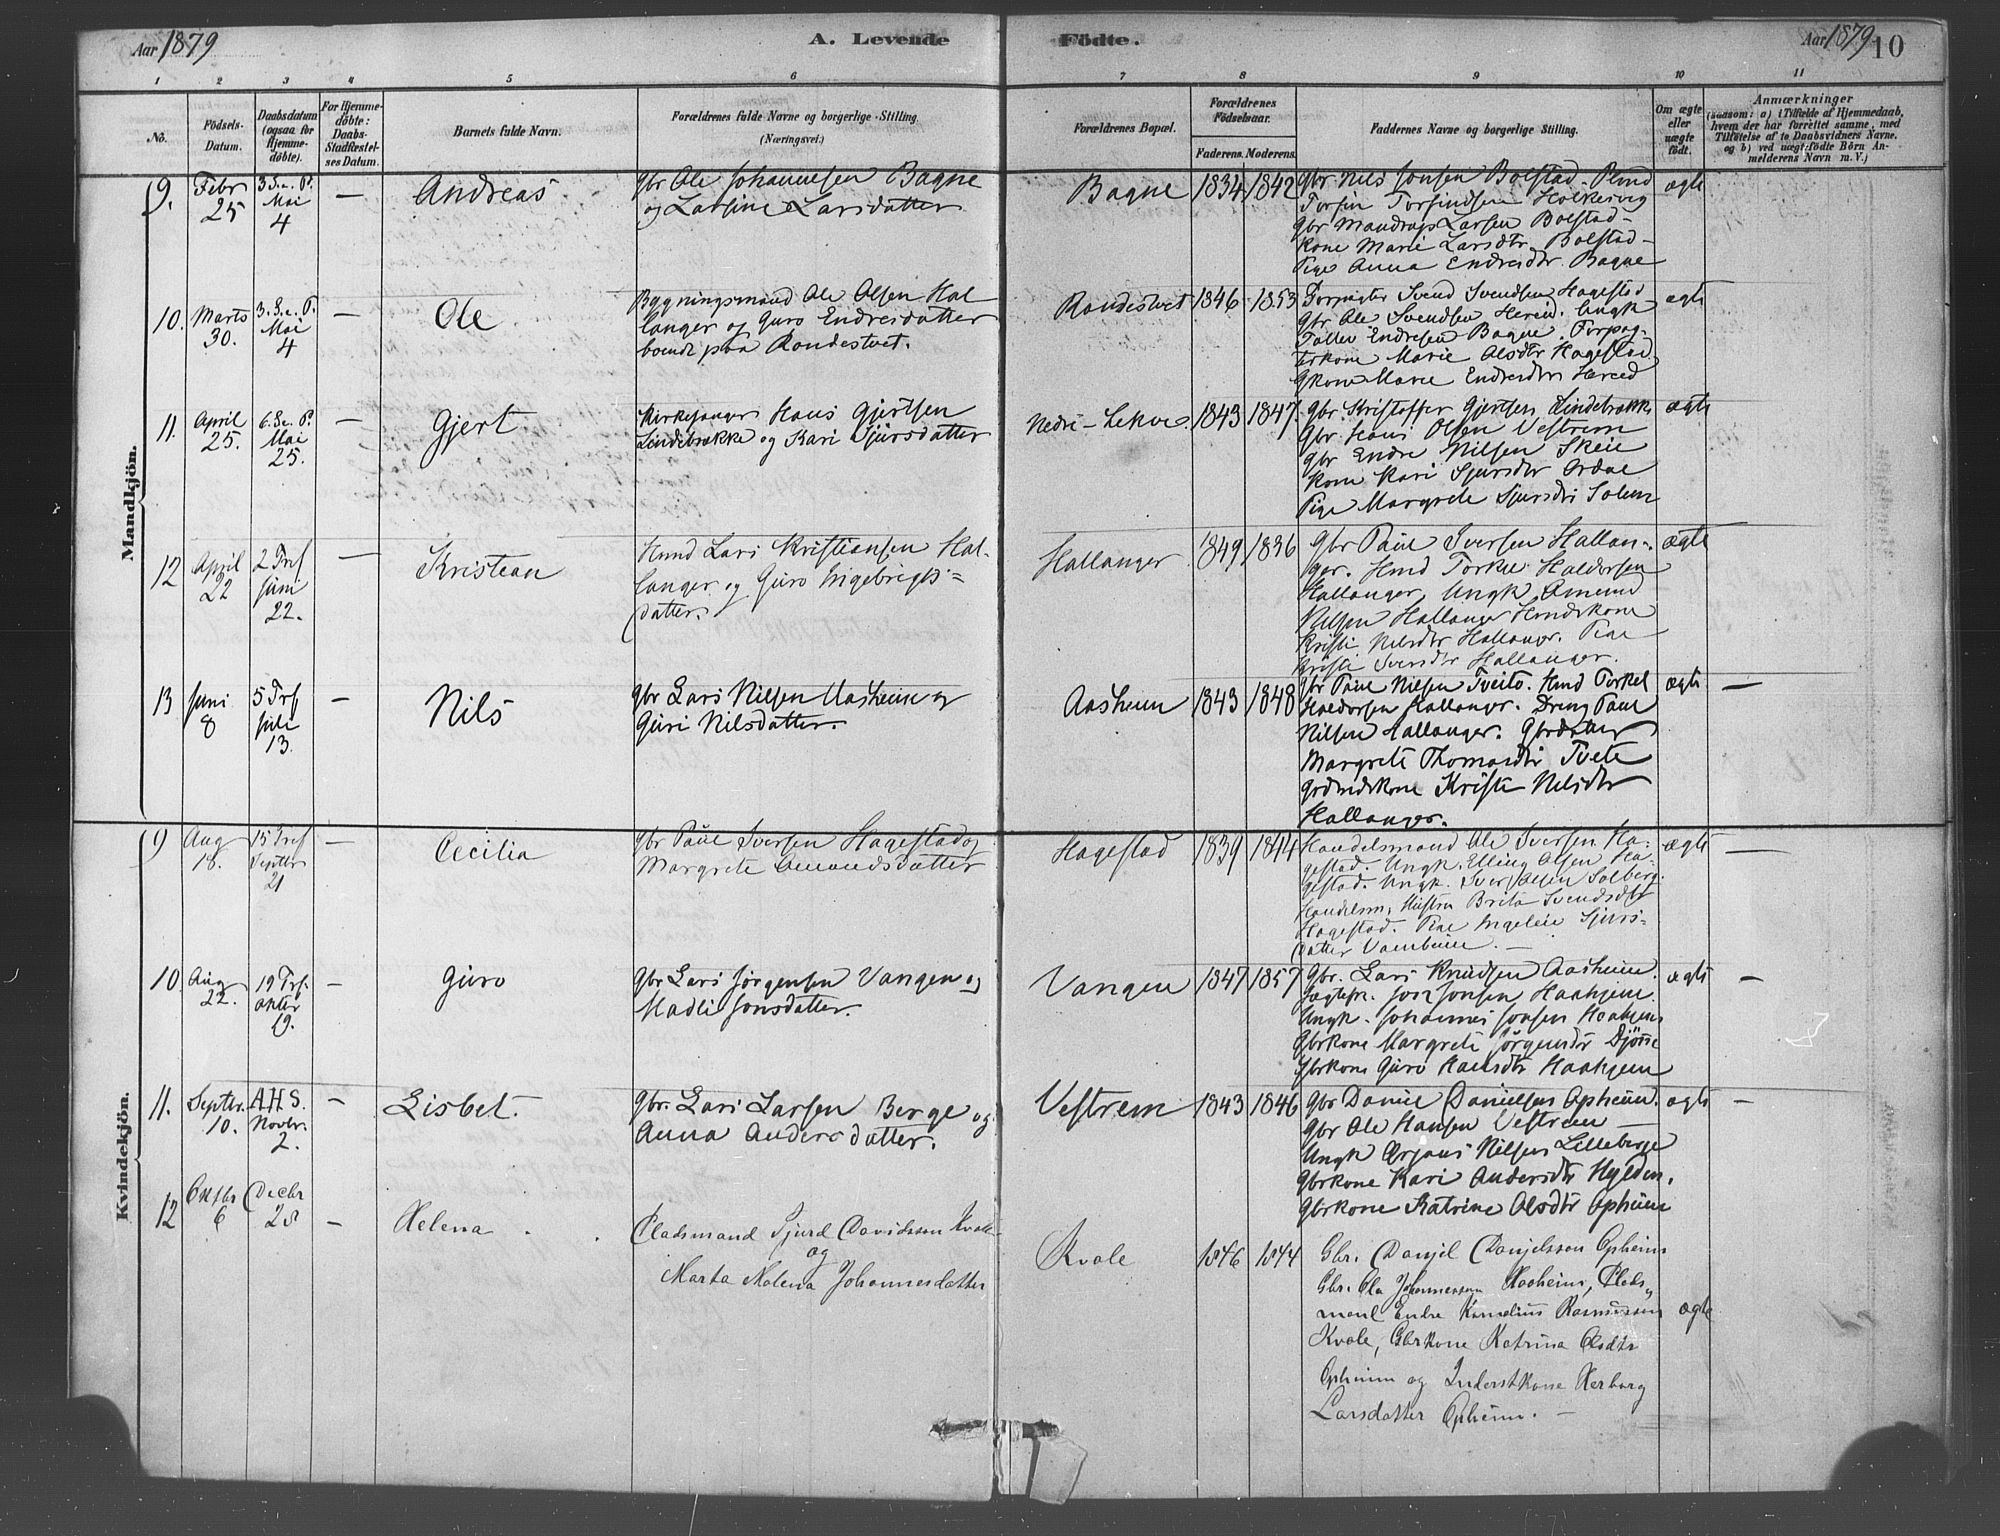 Aar 1879
A. Levende Födte.
Aar 1879 10
1 2 3 4 5 6 7 8 9 10 11
No.
Födsels-
Datum.
Daabsdatum
(ogsaa for
Hjemme-
döbte).
For Hjemme-
döbte:
Daabs-
Stadfæstel-
ses Datum.
Barnets fulde Navn.
Forældrenes fulde Navne og borgerlige Stilling.
(Næringsvei.)
Forældrenes Bopæl.
Forældrenes
Födselsaar.
Faderens. Moderens.
Faddernes Navne og borgerlige Stilling.
Om ægte
eller
uægte
födt.
Anmærkninger
(saasom: a) i Tilfælde af Hjemmedaab,
hvem der har forrettet samme, med
Tilföielse af to Daabsvidners Navne.
og b) ved uægt. födte Börn An-
melderens Navn m. V.)
Mandkjön.
9.
Febr
25
3 S. e. P.
Mai
4
—
Andreas
Gbr Ole Johannesen Bagne
og Larsine Larsdatter
Bagne
1834 1842
Gbr Nils Jonsen Bolstad
Torfin Torfindsen Holkesvig
Gbr Mandrup Larsen Bolstad
Kone Marie Larsdtr. Bolstad
Pige Anna Endresdtr. Bagne
ægte
10.
Marts
30.
3. S. e. P.
Mai
4
—
Ole
Bygningsmand Ole Olsen Hal
langer og Guro Endresdatter
boende paa Rondestvet.
Rondestvet
1846 1853
Forpagter Svend Svendsen Hagestad
Gbr Ole Svendsen Hereid. Ungk
Tollev Endresen Bagne. Forpag-
terkone Marie Olsdtr Hagestad
Gkone Marie Endresdtr Hereid
ægte
11.
April
25.
6. S. e. P.
Mai
25.
—
Gjert
Kirkesanger Hans Gjertsen
Lindebrække og Kari Sjursdatter
Nedre-Lekve
1843 1847
Gbr. Kristoffer Gjertsen Lindebrække
Gbr. Hans Olsen Vestrem
Gbr Endre Nilsen Skeie
Kone Kari Sjursdtr
Pige Margrete Sjursdtr
ægte
12
April
22
2 Trf
Juni
22.
—
Kristian
Hmd Lars Kristiansen Hal-
langer og Guro Ingebrigts-
datter.
Hallanger
1849 1836
Gbr Paul Iversen Hallan-
ger. Hmd Torkel Haldorsen
Hallanger, Ungk. Amund
Nilsen Hallanger Hmdskone
Kristi Nilsdtr Hallanger. Pige
Kristi Iversdtr Hallanger.
ægte
—
13
Juni
8
5 Trf
Juli
13.
—
Nils
Gbr Lars Nilsen Aasheim og
Guri Nilsdatter.
Aasheim
1843 1848
Gbr Paul Nilsen Tveito. Hmd Torkel
Haldorsen Hallanger. Dreng Paul
Nilsen Hallanger. Gbrdatter
Margrete Thomasdtr Tveite
Kristi Nilsdtr
Hallanger.
ægte
—
Kvindekjön.
9
Aug
18.
15 Tref
Septbr
21
—
Cecilia
Gbr Paul Iversen Hagestad og
Margrete Amundsdatter
Hagestad
1839 1844
Handelsmand Ole Iversen Ha-
gestad. Ungk. Elling Olsen Ha-
gestad. Ungk. Iver Olsen Solberg.
Handelsm. Hustru Brita Svendsdtr
Hagestad. Pige Ingeleie Sjurs-
datter Vambeim. —
ægte
—
10
Aug
22.
19 Trf.
Oktbr
19.
—
Guro
Gbr Lars Jørgensen Vangen og
Madli Jonsdatter.
Vangen
1847 1857
Gbr. Lars Knudsen Aasheim.
Jon Jonsen Haaheim.
Ungk. Johannes Jonsen Haaheim
Gbrkone Margrete Jørgensdtr Djønne
Gbrkone Guro Haaheim
ægte
—
11.
Septbr.
10.
A.H.S.
Novbr.
2.
—
Lisbet.
Gbr. Lars Larsen Berge og
Anna Andersdatter.
Vestrem
1843 1846
Gbr Daniel Danielsen Opheim.
Gbr Ole Hansen Vestrem —
Ungk Ørjans Nilsen Lilleberge
Gbrkone Kari Andersdtr Hylden.
Gbrkone Katrine Olsdtr Opheim
ægte
—
12
Oktbr
6
Decbr
28
—
Helena
Pladsmand Sjurd Davidsson Kvale
og
Marta Malena Johannesdatter
Kvale
1846 1844
Gbr. Danjel Danjelsson Opheim
Gbr. Ola Johannesson Haaheim, Plads-
mand Endre Kornelius Rasmussen
Kvale, Gbrkone Katrina Olsdtr
Opheim og Inderstkone Herborg
Larsdatter Opheim. —
ægte